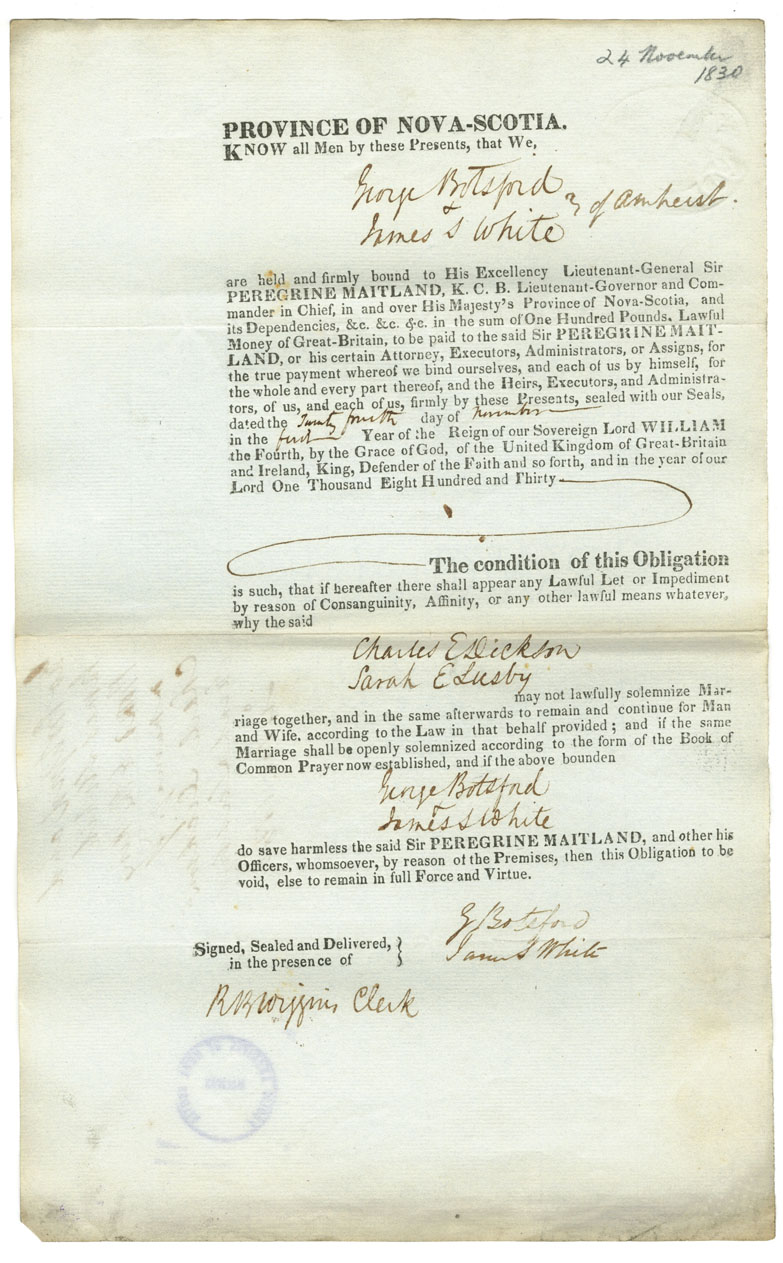 24 November
1830
PROVINCE OF NOVA-SCOTIA.
KNOW all Men by these Presents, that We,
George Botsford
& } of Amherst.
James S White
are held and firmly bound to His Excellency Lieutenant-General Sir
PEREGRINE MAITLAND, K. C. B. Lieutenant-Governor and Com-
mander in Chief, in and over His Majesty's Province of Nova-Scotia, and
its Dependencies, &c. &c. &c. in the sum of One Hundred Pounds. Lawful
Money of Great-Britain, to be paid to the said Sir PEREGRINE MAIT-
LAND, or his certain Attorney, Executors, Administrators, or Assigns, for
the true payment whereof we bind ourselves, and each of us by himself, for
the whole and every part thereof, and the Heirs, Executors, and Administra-
tors, of us, and each of us, firmly by these Presents, sealed with our Seals,
dated the Twenty fourth day of November
in the first Year of the Reign of our Sovereign Lord WILLIAM
the Fourth, by the Grace of God, of the United Kingdom of Great-Britain
and Ireland, King, Defender of the Faith and so forth, and in the year of our
Lord One Thousand Eight Hundred and Thirty
The condition of this Obligation
is such, that if hereafter there shall appear any Lawful Let or Impediment
by reason of Consanguinity, Affinity, or any other lawful means whatever,
why the said
Charles E Dickson
Sarah E Lusby
may not lawfully solemnize Mar-
riage together, and in the same afterwards to remain and continue for Man
and Wife, according to the Law in that behalf provided; and if the same
Marriage shall be openly solemnized according to the form of the Book of
Common Prayer now established, and if the above bounden
George Botsford
James S White
do save harmless the said Sir PEREGRINE MAITLAND, and other his
Officers, whomsoever, by reason of the Premises, then this Obligation to be
void, else to remain in full Force and Virtue.
G Botsford
Signed, Sealed and Delivered, }
James S White
in the presence of
R B Wiggins Clerk